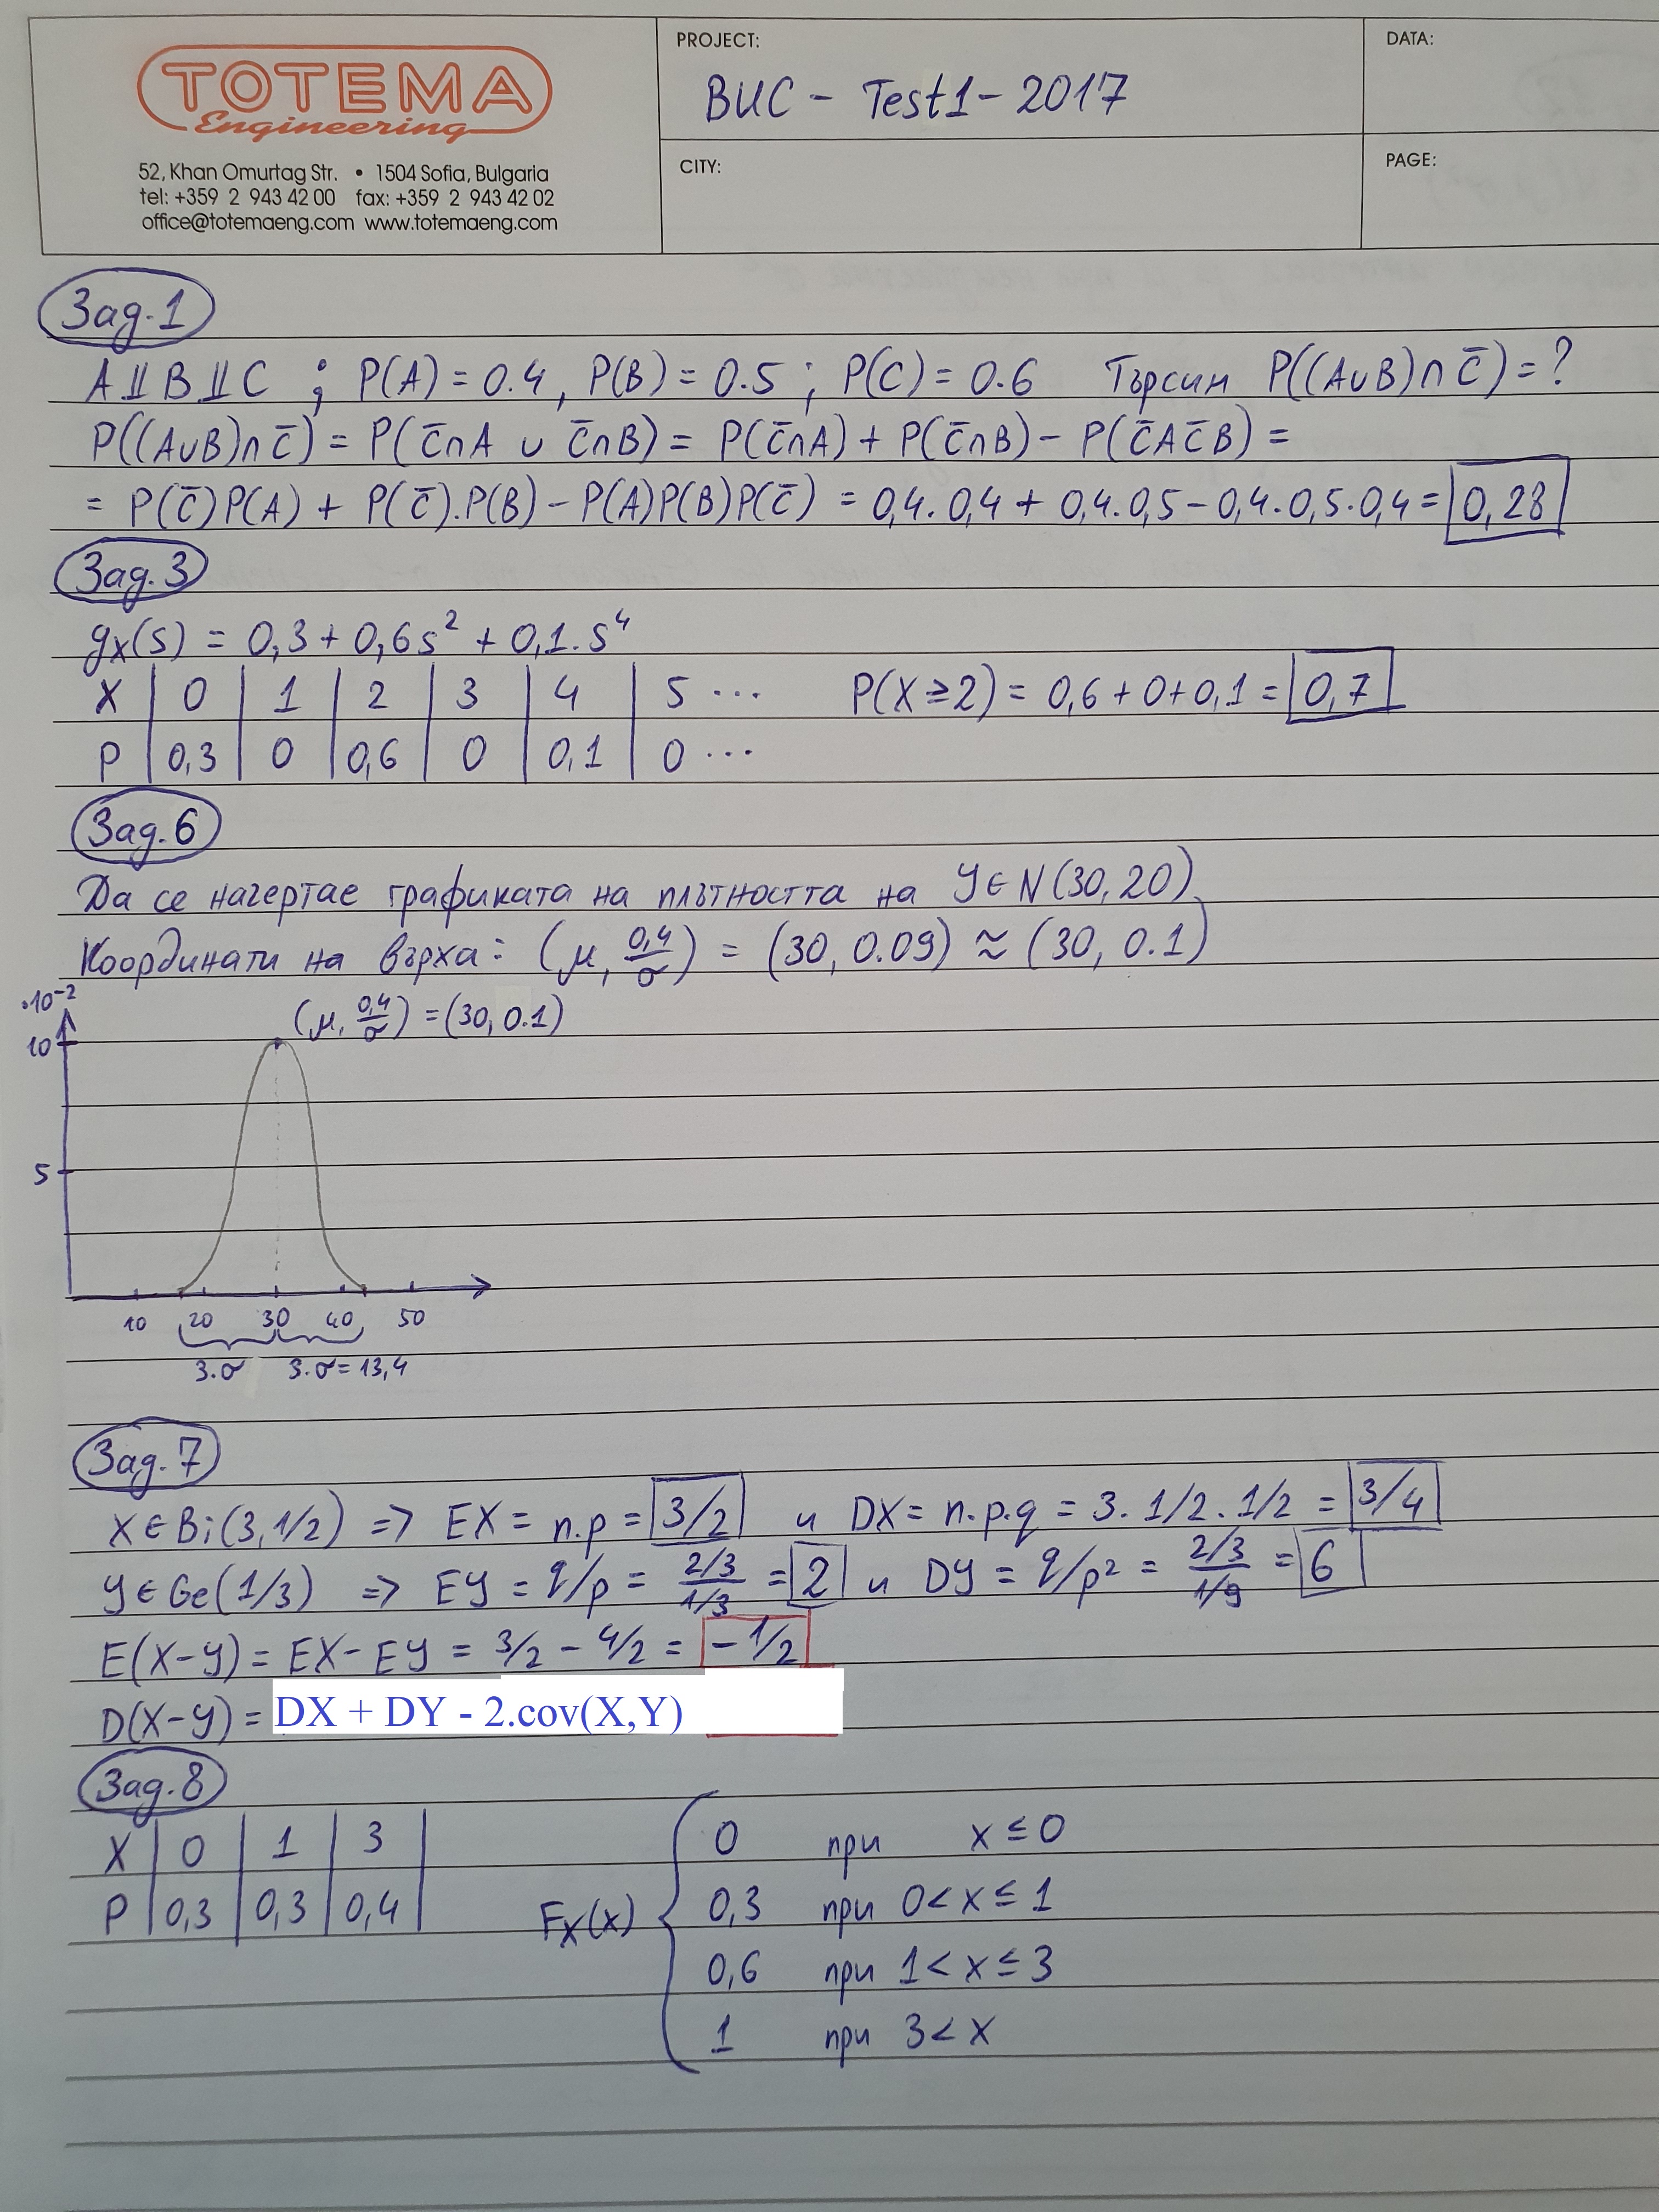 TOTEMA
Engineering
52, Khan Omurtag Str. • 1504 Sofia, Bulgaria
tel: +359 2 943 42 00 fax: +359 2 943 42 02
office@totemaeng.com www.totemaeng.com
PROJECT:
ВИС - Test1 - 2017
DATA:
CITY:
PAGE:
Зад.1
A⫫B⫫C ; P(A) = 0.4, P(B) = 0.5 ; P(C) = 0.6 Търсим P((A∪B)∩C̅) = ?
P((A∪B)∩C̅) = P(C̅∩A ∪ C̅∩B) = P(C̅∩A) + P(C̅∩B) - P(C̅AC̅B) =
= P(C̅)P(A) + P(C̅).P(B) - P(A)P(B)P(C̅) = 0,4.0,4 + 0,4.0,5 - 0,4.0,5.0,4 = 0,28
Зад.3
gₓ(s) = 0,3 + 0,6s² + 0,1.s⁴
X | 0 | 1 | 2 | 3 | 4 | 5 ...
P(X≥2) = 0,6+0+0,1 = 0,7
P | 0,3 | 0 | 0,6 | 0 | 0,1 | 0 ...
Зад.6
Да се начертае графиката на плътността на Y∈N(30,20)
Координати на върха: (μ, 0,4/σ) = (30, 0.09) ≈ (30, 0.1)
.10⁻²
(μ, 0,4/σ) = (30, 0.1)
10
5
10 20 30 40 50
3.σ 3.σ = 13,4
Зад.7
X∈Bi(3,1/2) => EX = n.p = 3/2 и DX = n.p.q = 3.1/2.1/2 = 3/4
Y∈Ge(1/3) => EY = q/p = 2/3/1/3 = 2 и DY = q/p² = 2/3/1/9 = 6
E(X-Y) = EX-EY = 3/2 - 4/2 = -1/2
D(X-Y) = DX + DY - 2.cov(X,Y)
Зад.8
X | 0 | 1 | 3 |
P | 0,3 | 0,3 | 0,4 |
Fₓ(x) {
0 при x ≤ 0
0,3 при 0 < x ≤ 1
0,6 при 1 < x ≤ 3
1 при 3 < x